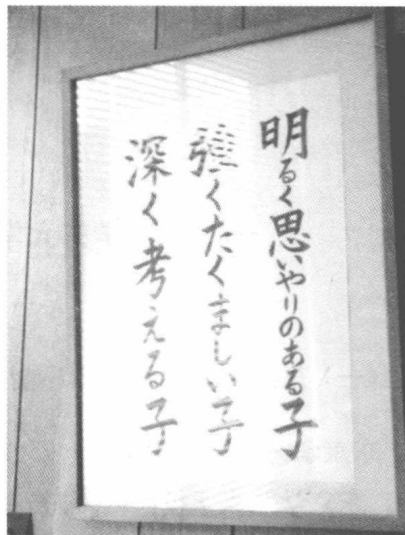 明るく思いやりのある子
強くたくましい子
深く考える子